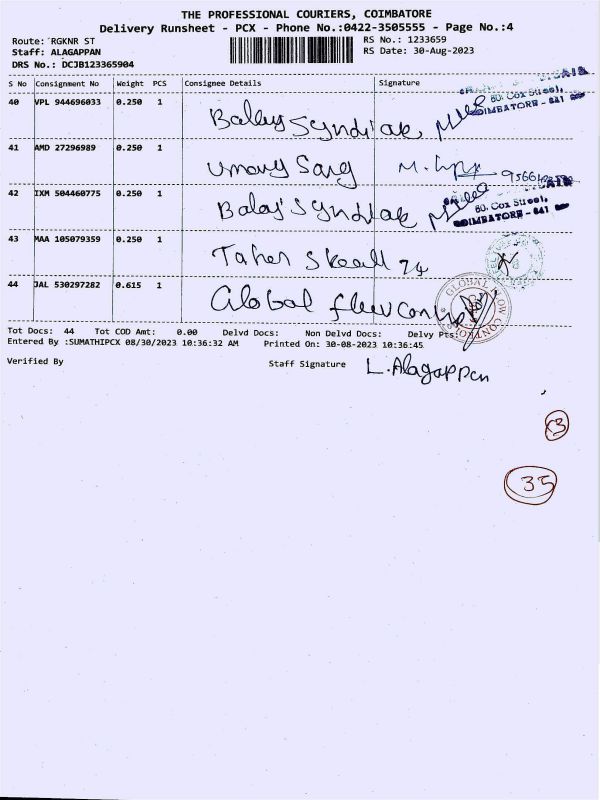 THE PROFESSIONAL COURIERS, COIMBATORE
Delivery Runsheet - PCX - Phone No.:0422-3505555 - Page No.:4
Route: RGKNR ST RS No.: 1233659
Staff: ALAGAPPAN RS Date: 30-Aug-2023
DRS No.: DCJB123365904
S No Consignment No Weight PCS Consignee Details Signature
40 VPL 944696033 0.250 1
60, Cox Street,
COIMBATORE - 641
41 AMD 27296989 0.250 1
42 IXM 504460775 0.250 1
60, Cox Street,
COIMBATORE - 641
43 MAA 105079359 0.250 1 Taher
44 JAL 530297282 0.615 1 Global
GLOBAL FLOW CONTROL
Tot Docs: 44 Tot COD Amt: 0.00 Delvd Docs: Non Delvd Docs: Delvy Pts:
Entered By :SUMATHIPCX 08/30/2023 10:36:32 AM Printed On: 30-08-2023 10:36:45
Verified By Staff Signature L. Alagappan
35